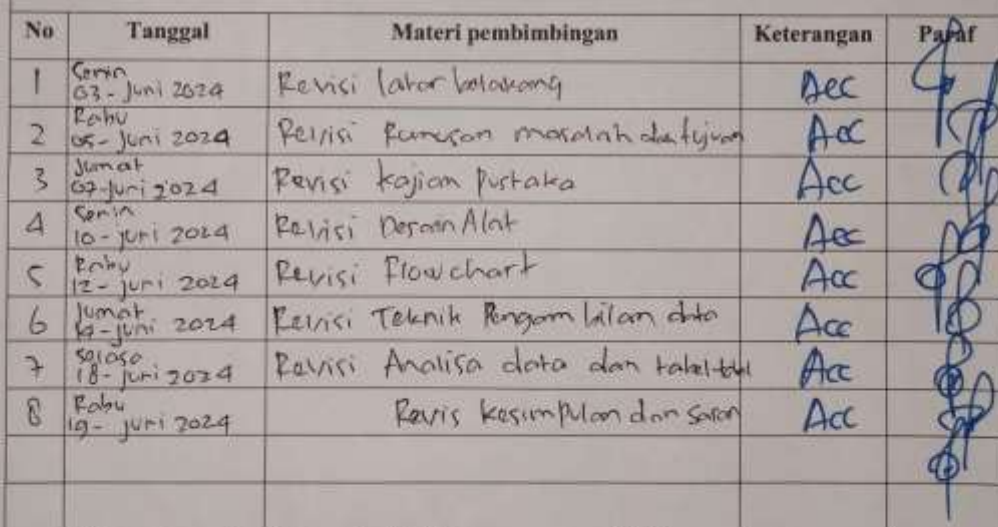 No Tanggal Materi pembimbingan Keterangan Paraf
1 Senin 03 - Juni 2024 Revisi latar belakang Acc
2 Rabu 05 - Juni 2024 Revisi Rumusan masalah dan tujuan Acc
3 Jumat 07 - Juni 2024 Revisi kajian Pustaka Acc
4 Senin 10 - juni 2024 Revisi Desain Alat Acc
5 Rabu 12 - juni 2024 Revisi Flowchart Acc
6 Jumat 14 - juni 2024 Revisi Teknik Pengambilan data Acc
7 Selasa 18 - juni 2024 Revisi Analisa data dan tabel-tabel Acc
8 Rabu 19 - juni 2024 Revis kesimpulan dan saran Acc